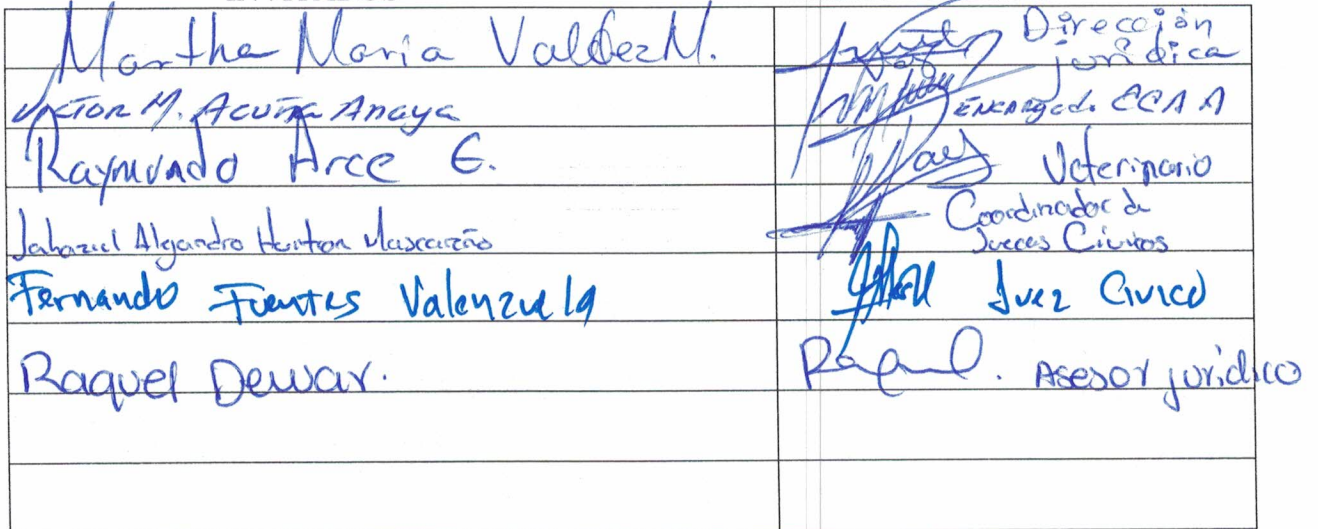 Martha Maria Valdez M. Dirección
jurídica
Victor M. Acuña Anaya Encargado CCAA
Raymundo Arce E. Veterinario
Coordinador de
Jahaziel Alejandro Horton Mascareño Jueces Cívicos
Fernando Fuentes Valenzuela Juez Civico
Raquel Dewar. Raquel. Asesor jurídico